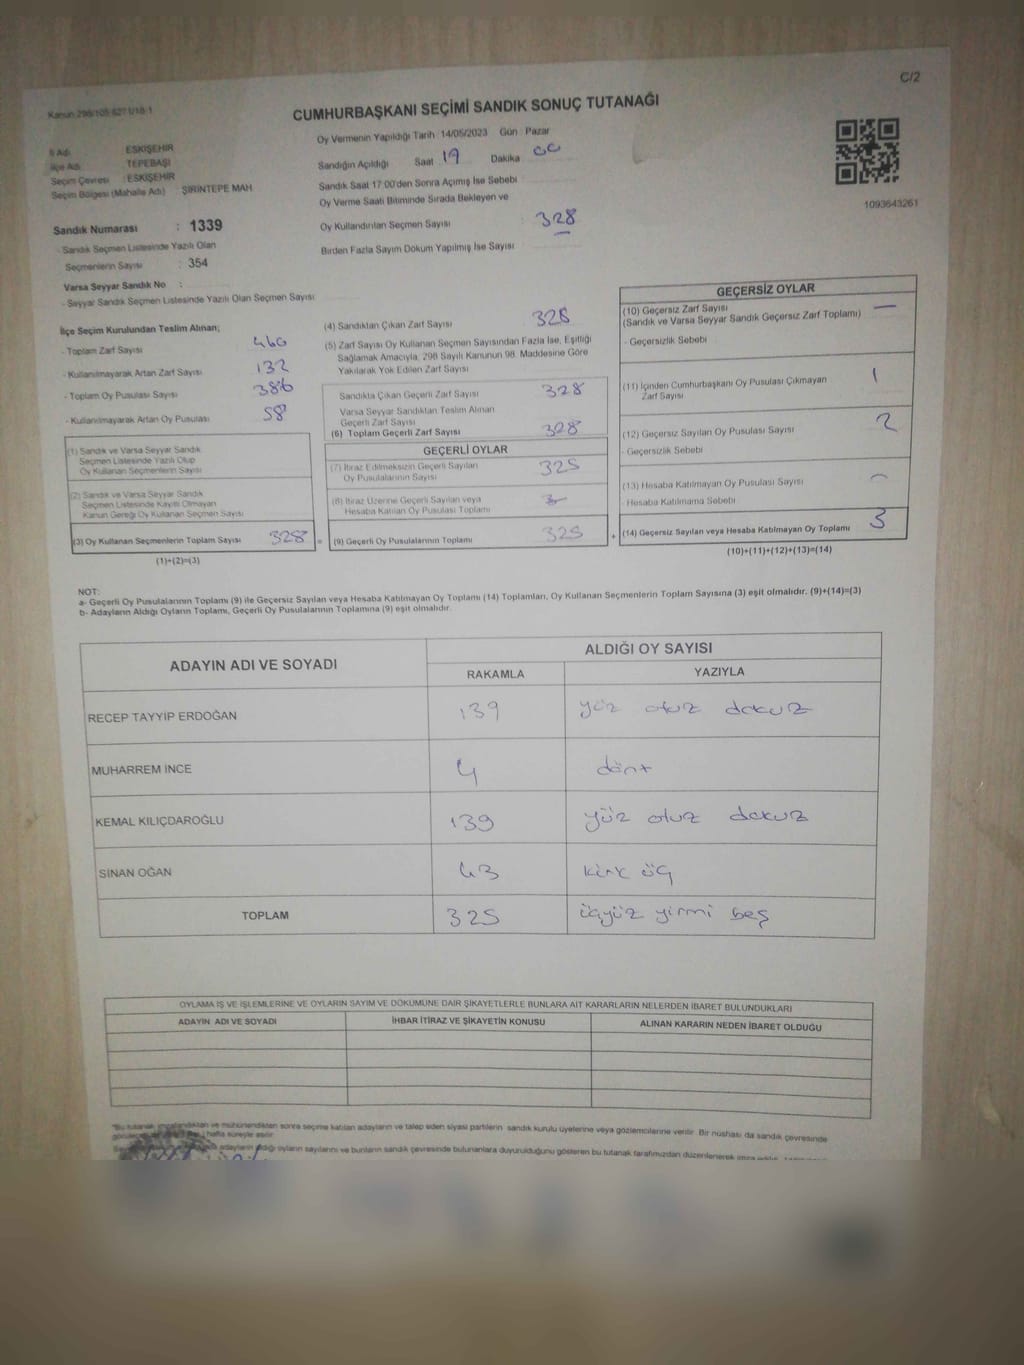 C/2
CUMHURBAŞKANI SEÇİMİ SANDIK SONUÇ TUTANAĞI
Oy Vermenin Yapıldığı Tarih 14/05/2023 Gün Pazar
İl Adı : ESKİŞEHİR
İlçe Adı : TEPEBAŞI
Seçim Çevresi : ESKİŞEHİR
Seçim Bölgesi (Mahalle Adı) : ŞİRİNTEPE MAH
Sandığın Açıldığı Saat 19 Dakika 00
Sandık Saat 17:00'den Sonra Açımış İse Sebebi
Oy Verme Saati Bitiminde Sırada Bekleyen ve
Oy Kullandırılan Seçmen Sayısı : 328
Birden Fazla Sayım Döküm Yapılmış İse Sayısı
1093643261
Sandık Numarası : 1339
- Sandık Seçmen Listesinde Yazılı Olan
Seçmenlerin Sayısı : 354
Varsa Seyyar Sandık No :
- Seyyar Sandık Seçmen Listesinde Yazılı Olan Seçmen Sayısı
İlçe Seçim Kurulundan Teslim Alınan;
- Toplam Zarf Sayısı 460
- Kullanılmayarak Artan Zarf Sayısı 132
- Toplam Oy Pusulası Sayısı 386
- Kullanılmayarak Artan Oy Pusulası 58
(1) Sandık ve Varsa Seyyar Sandık
Seçmen Listesinde Yazılı Olup
Oy Kullanan Seçmenlerin Sayısı
(2) Sandık ve Varsa Seyyar Sandık
Seçmen Listesinde Kayıtlı Olmayan
Kanun Gereği Oy Kullanan Seçmen Sayısı
(3) Oy Kullanan Seçmenlerin Toplam Sayısı 328 =
(1)+(2)=(3)
(4) Sandıktan Çıkan Zarf Sayısı 328
(5) Zarf Sayısı Oy Kullanan Seçmen Sayısından Fazla İse, Eşitliği
Sağlamak Amacıyla, 298 Sayılı Kanunun 98. Maddesine Göre
Yakılarak Yok Edilen Zarf Sayısı
Sandıkta Çıkan Geçerli Zarf Sayısı 328
Varsa Seyyar Sandıktan Teslim Alınan
Geçerli Zarf Sayısı
(6) Toplam Geçerli Zarf Sayısı 328
GEÇERLİ OYLAR
(7) İtiraz Edilmeksizin Geçerli Sayılan
Oy Pusulalarının Sayısı 325
(8) İtiraz Üzerine Geçerli Sayılan veya
Hesaba Katılan Oy Pusulası Toplamı
(9) Geçerli Oy Pusulalarının Toplamı 325 +
GEÇERSİZ OYLAR
(10) Geçersiz Zarf Sayısı —
(Sandık ve Varsa Seyyar Sandık Geçersiz Zarf Toplamı)
- Geçersizlik Sebebi
(11) İçinden Cumhurbaşkanı Oy Pusulası Çıkmayan
Zarf Sayısı 1
(12) Geçersiz Sayılan Oy Pusulası Sayısı 2
- Geçersizlik Sebebi
(13) Hesaba Katılmayan Oy Pusulası Sayısı
- Hesaba Katılmama Sebebi
(14) Geçersiz Sayılan veya Hesaba Katılmayan Oy Toplamı 3
(10)+(11)+(12)+(13)=(14)
NOT:
a- Geçerli Oy Pusulalarının Toplamı (9) ile Geçersiz Sayılan veya Hesaba Katılmayan Oy Toplamı (14) Toplamları, Oy Kullanan Seçmenlerin Toplam Sayısına (3) eşit olmalıdır. (9)+(14)=(3)
b- Adayların Aldığı Oyların Toplamı, Geçerli Oy Pusulalarının Toplamına (9) eşit olmalıdır.
ADAYIN ADI VE SOYADI
ALDIĞI OY SAYISI
RAKAMLA YAZIYLA
RECEP TAYYİP ERDOĞAN 139 yüz otuz dokuz
MUHARREM İNCE 4 dört
KEMAL KILIÇDAROĞLU 139 yüz otuz dokuz
SİNAN OĞAN 43 kırk üç
TOPLAM 325 üçyüz yirmi beş
OYLAMA İŞ VE İŞLEMLERİNE VE OYLARIN SAYIM VE DÖKÜMÜNE DAİR ŞİKAYETLERLE BUNLARA AİT KARARLARIN NELERDEN İBARET BULUNDUKLARI
ADAYIN ADI VE SOYADI İHBAR İTİRAZ VE ŞİKAYETİN KONUSU ALINAN KARARIN NEDEN İBARET OLDUĞU
"Bu tutanak imzalandıktan ve mühürlendikten sonra seçime katılan adayların ve talep eden siyasi partilerin sandık kurulu üyelerine veya gözlemcilerine verilir. Bir nüshası da sandık çevresinde
hafta süreyle asılır.
adayların aldığı oyların sayılarını ve bunların sandık çevresinde bulunanlara duyurulduğunu gösteren bu tutanak tarafımızdan düzenlenerek